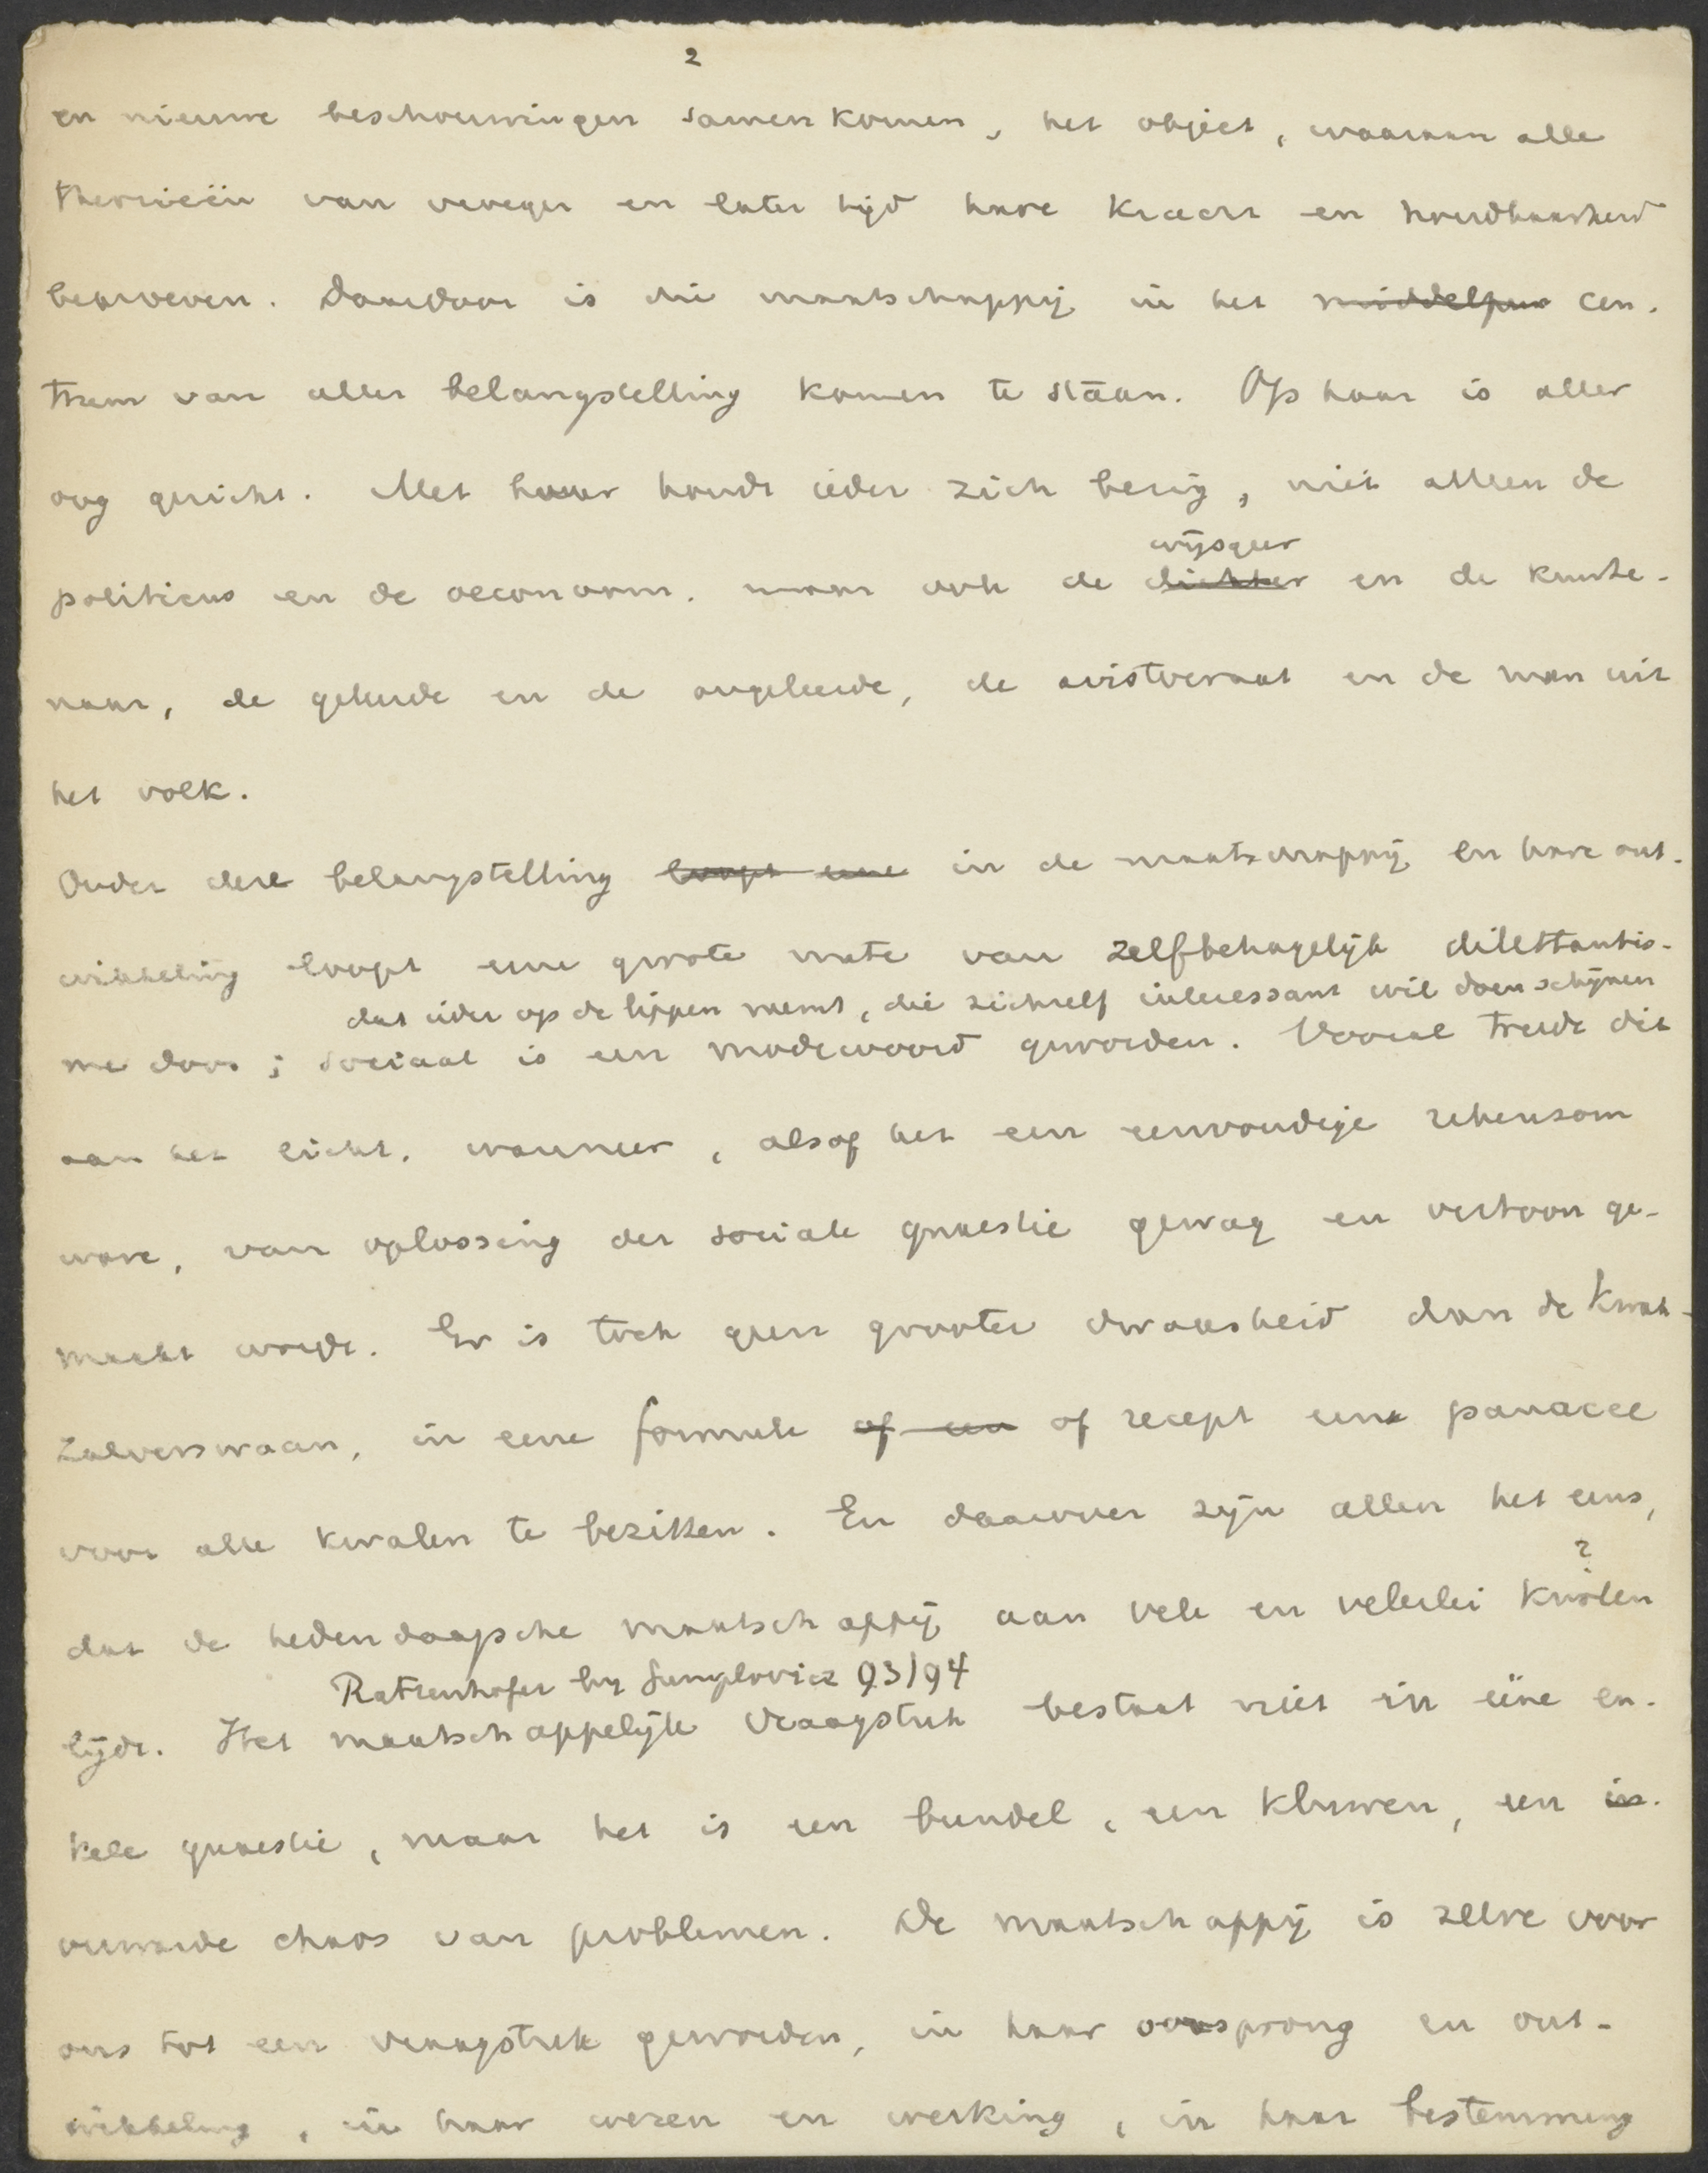 2
en nieuwe beschouwingen samenkomen, het object, waaraan alle
theorieën van vroeger en later tijd hare kracht en houdbaarheid
beproeven. Daardoor is die maatschappij in het middelpun cen-
trum van aller belangstelling komen te staan. Op haar is aller
oog gericht. Met haar houdt ieder zich bezig, niet alleen de
politicus en de oeconoom, maar ook de dichter wijsgeer en de kunste-
naar, de geleerde en de ongeleerde, de aristocraat en de man uit
het volk.
Onder deze belangstelling loopt eene in de maatschappij en hare ont-
wikkeling loopt eene groote mate van zelfbehagelijk dilettantis-
dat ieder op de lippen neemt, die zichzelf interessant wil doen schijnen
me door; sociaal is een modewoord geworden. Vooral treedt dit
aan het licht, wanneer, alsof het een eenvoudige rekensom
ware, van oplossing der sociale quaestie gewag en vertoon ge-
maakt wordt. Er is toch geen grooter dwaasheid dan de kwak-
zalverswaan, in eene formule of een of recept eene panacee
voor alle kwalen te bezitten. En daarover zijn allen het eens,
?
dat de hedendaagsche maatschappij aan vele en velerlei kwalen
Ratzenhofer by Gumplovicz 93/94
lijdt. Het maatschappelijk vraagstuk bestaat niet in ééne en-
kele quaestie, maar het is een bundel, een kluwen, een in-
verwarde chaos van problemen. De maatschappij is zelve voor
ons tot een vraagstuk geworden, in haar oorsprong en ont-
wikkeling, in haar wezen en werking, in haar bestemming